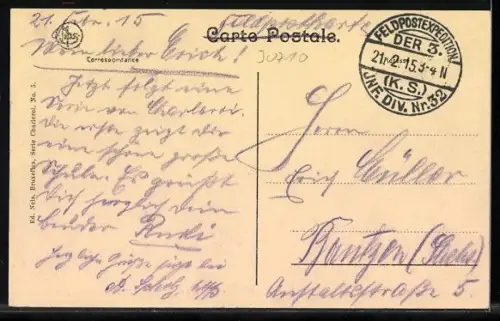 21. Febr. 15 Feldpostkarte
Carte Postale.
Correspondance
Mein lieber Erich!
Jetzt folgt eine
Serie von Charleroi,
die erste zeigt Dir
eine schöne große
Schule. Es grüßt
Dich herzlich Dein
Bruder Rudi
Herzliche Grüße
30710
Ed. Nels, Bruxelles, Serie Charleroi No. 5.
FELDPOSTEXPEDITION
DER 3.
21. 2. 15. 3-4 N
(K. S.)
INF. DIV. Nr. 32
Herrn
Erich Müller
Bautzen (Sachs)
Anstaltstraße 5.